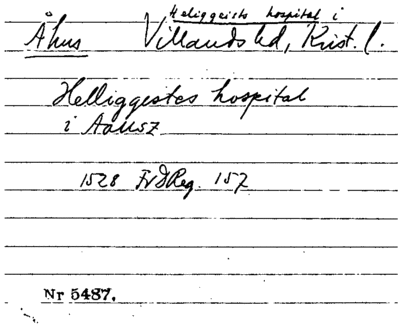 Helliggeists hospital i
Åhus Villands hd, Krist. l.
Helliggestes hospital
i Aausz
1528 FrDReg. 157
Nr 5487.